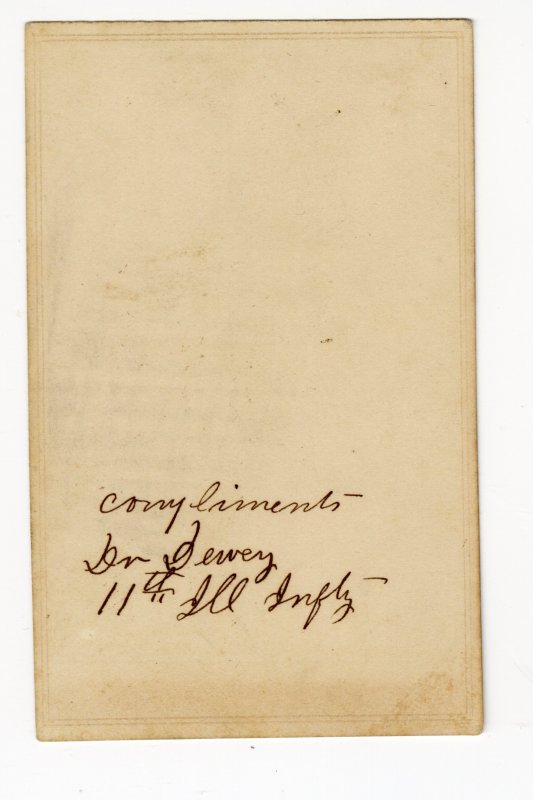 compliments
Dr Dewey
11th Ill Infty